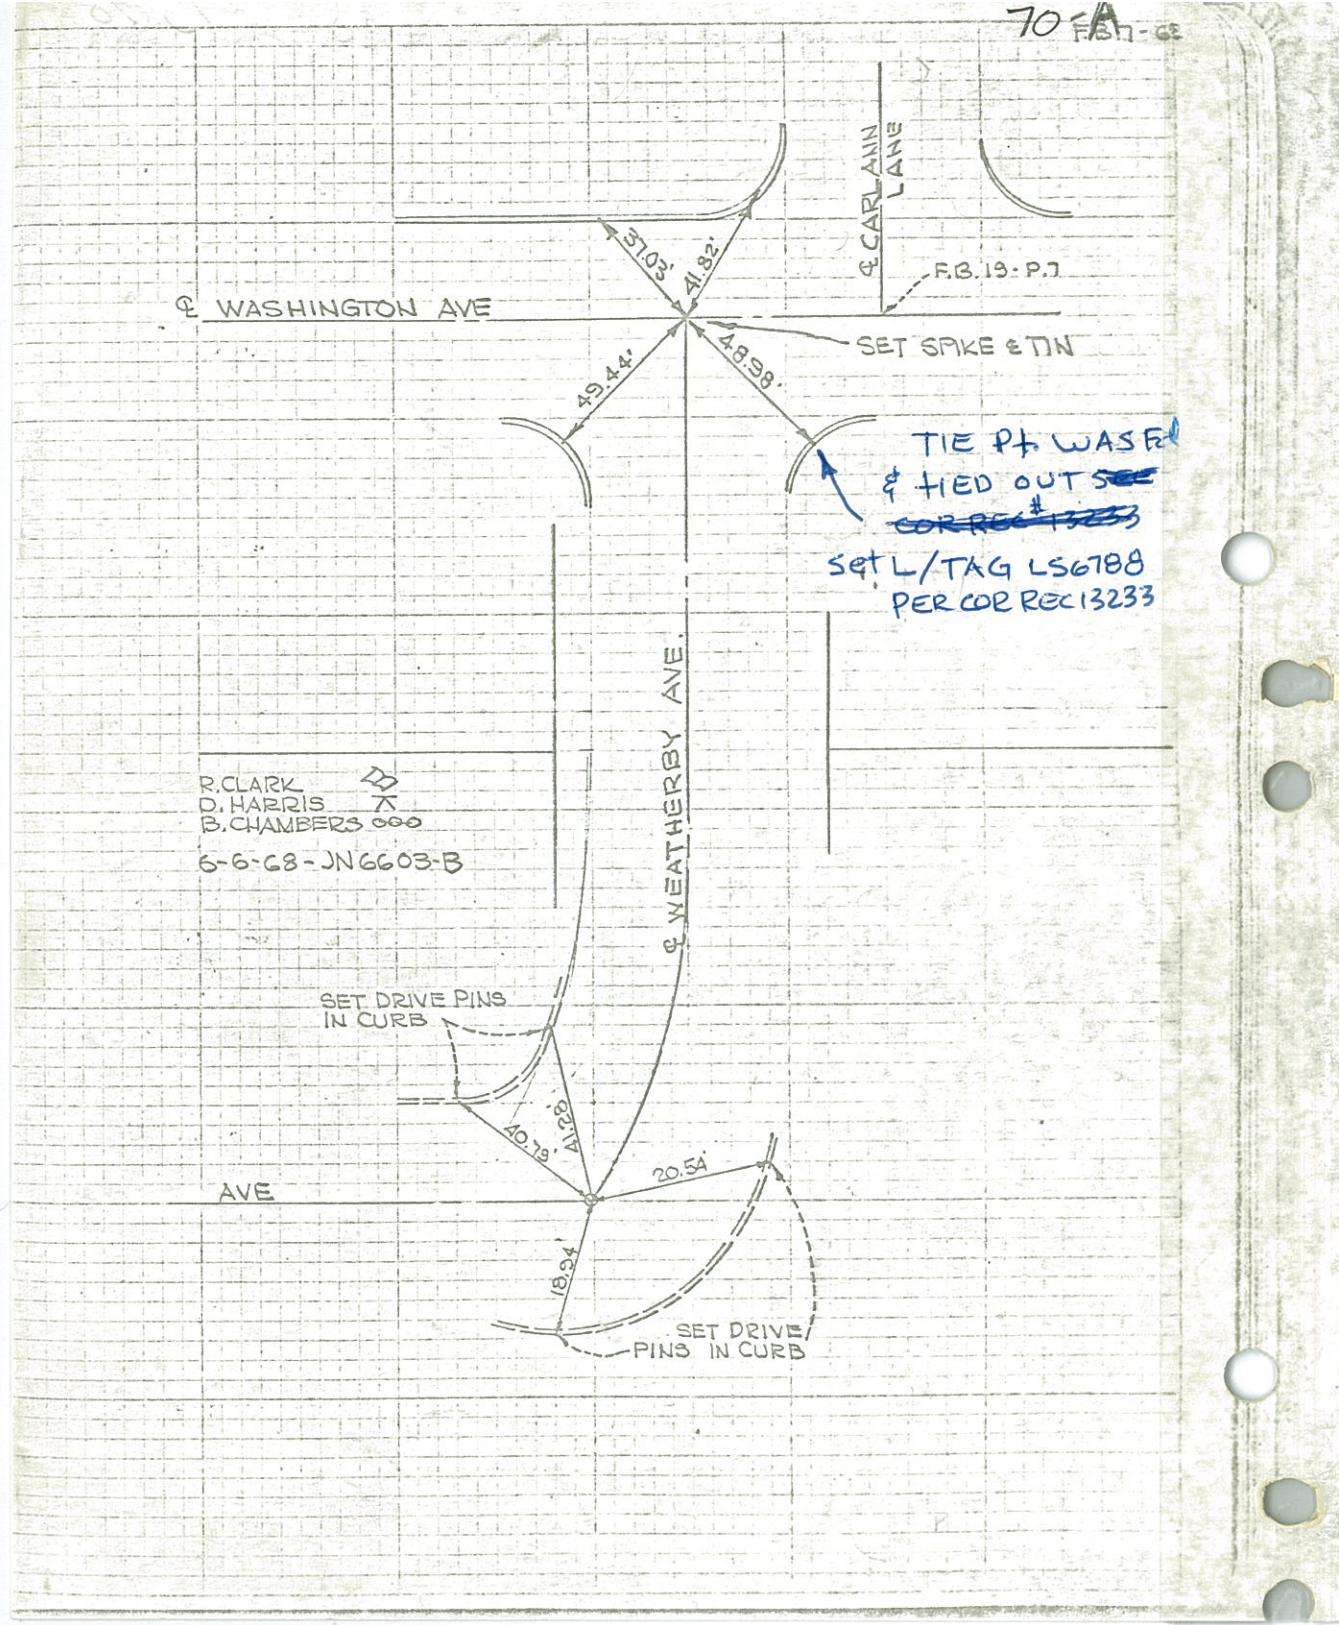 70-A
F.B.7-68
℄ CARLANN
LANE
37.03'
41.82'
F.B. 19 - P.7
℄ WASHINGTON AVE
SET SPIKE & TIN
49.44'
48.98'
TIE Pt. WAS Fd
& tIED OUT SEE
COR REC # 13233
set L/TAG LS6788
PER COR REC 13233
℄ WEATHERBY AVE.
R. CLARK
D. HARRIS
B. CHAMBERS
6-6-68 - JN 6603-B
SET DRIVE PINS
IN CURB
40.79'
41.28'
20.54'
AVE
18.94'
SET DRIVE
PINS IN CURB